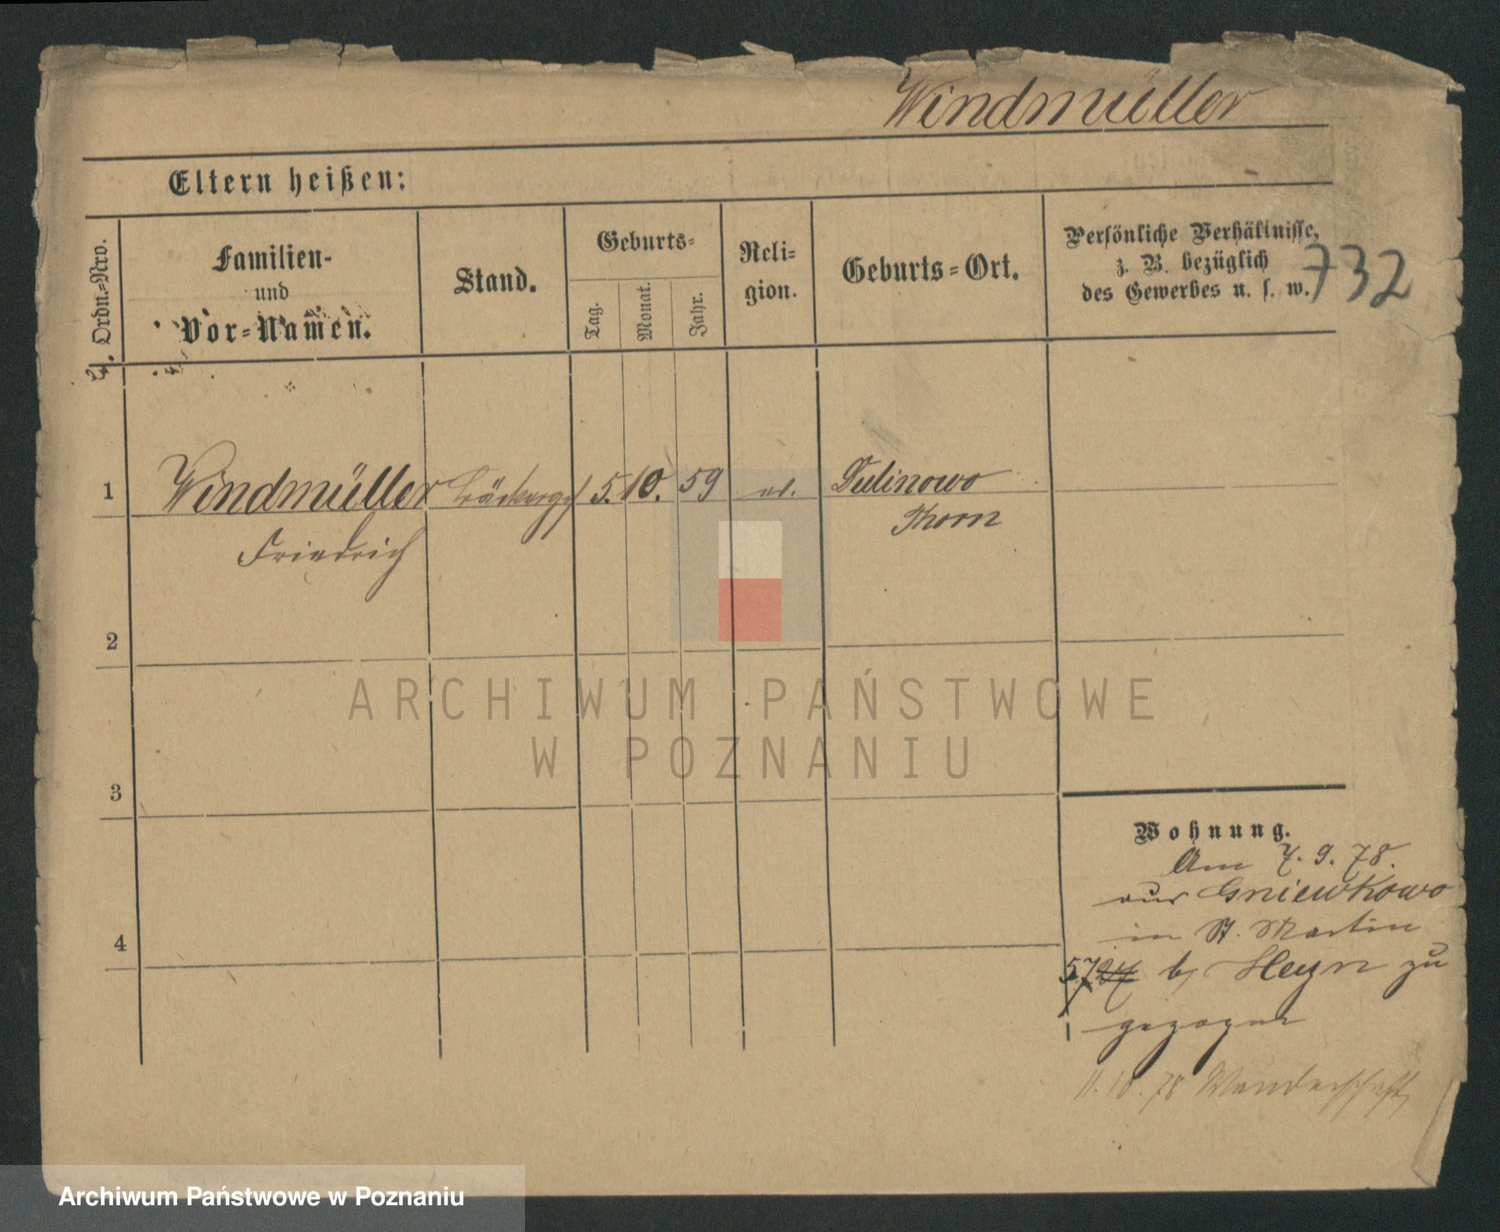 Windmüller
Eltern heißen:
Ordn.-Nro.
Familien-
und
Vor-Namen.
Stand.
Geburts-
Tag.
Monat.
Jahr.
Reli-
gion.
Geburts-Ort.
Persönliche Verhältnisse,
z. B. bezüglich
des Gewerbes u. s. w.
732
1
Windmüller Bäckerges 5. 10. 59 ev.
Friedrich
Thorn
2
3
4
Wohnung.
Am 7. 9. 78.
aus Gniewkowo
in St. Martin
57 b/ Heyn zu
gezogen
11. 10. 78 Wanderschaft
ARCHIWUM PAŃSTWOWE
W POZNANIU
Archiwum Państwowe w Poznaniu